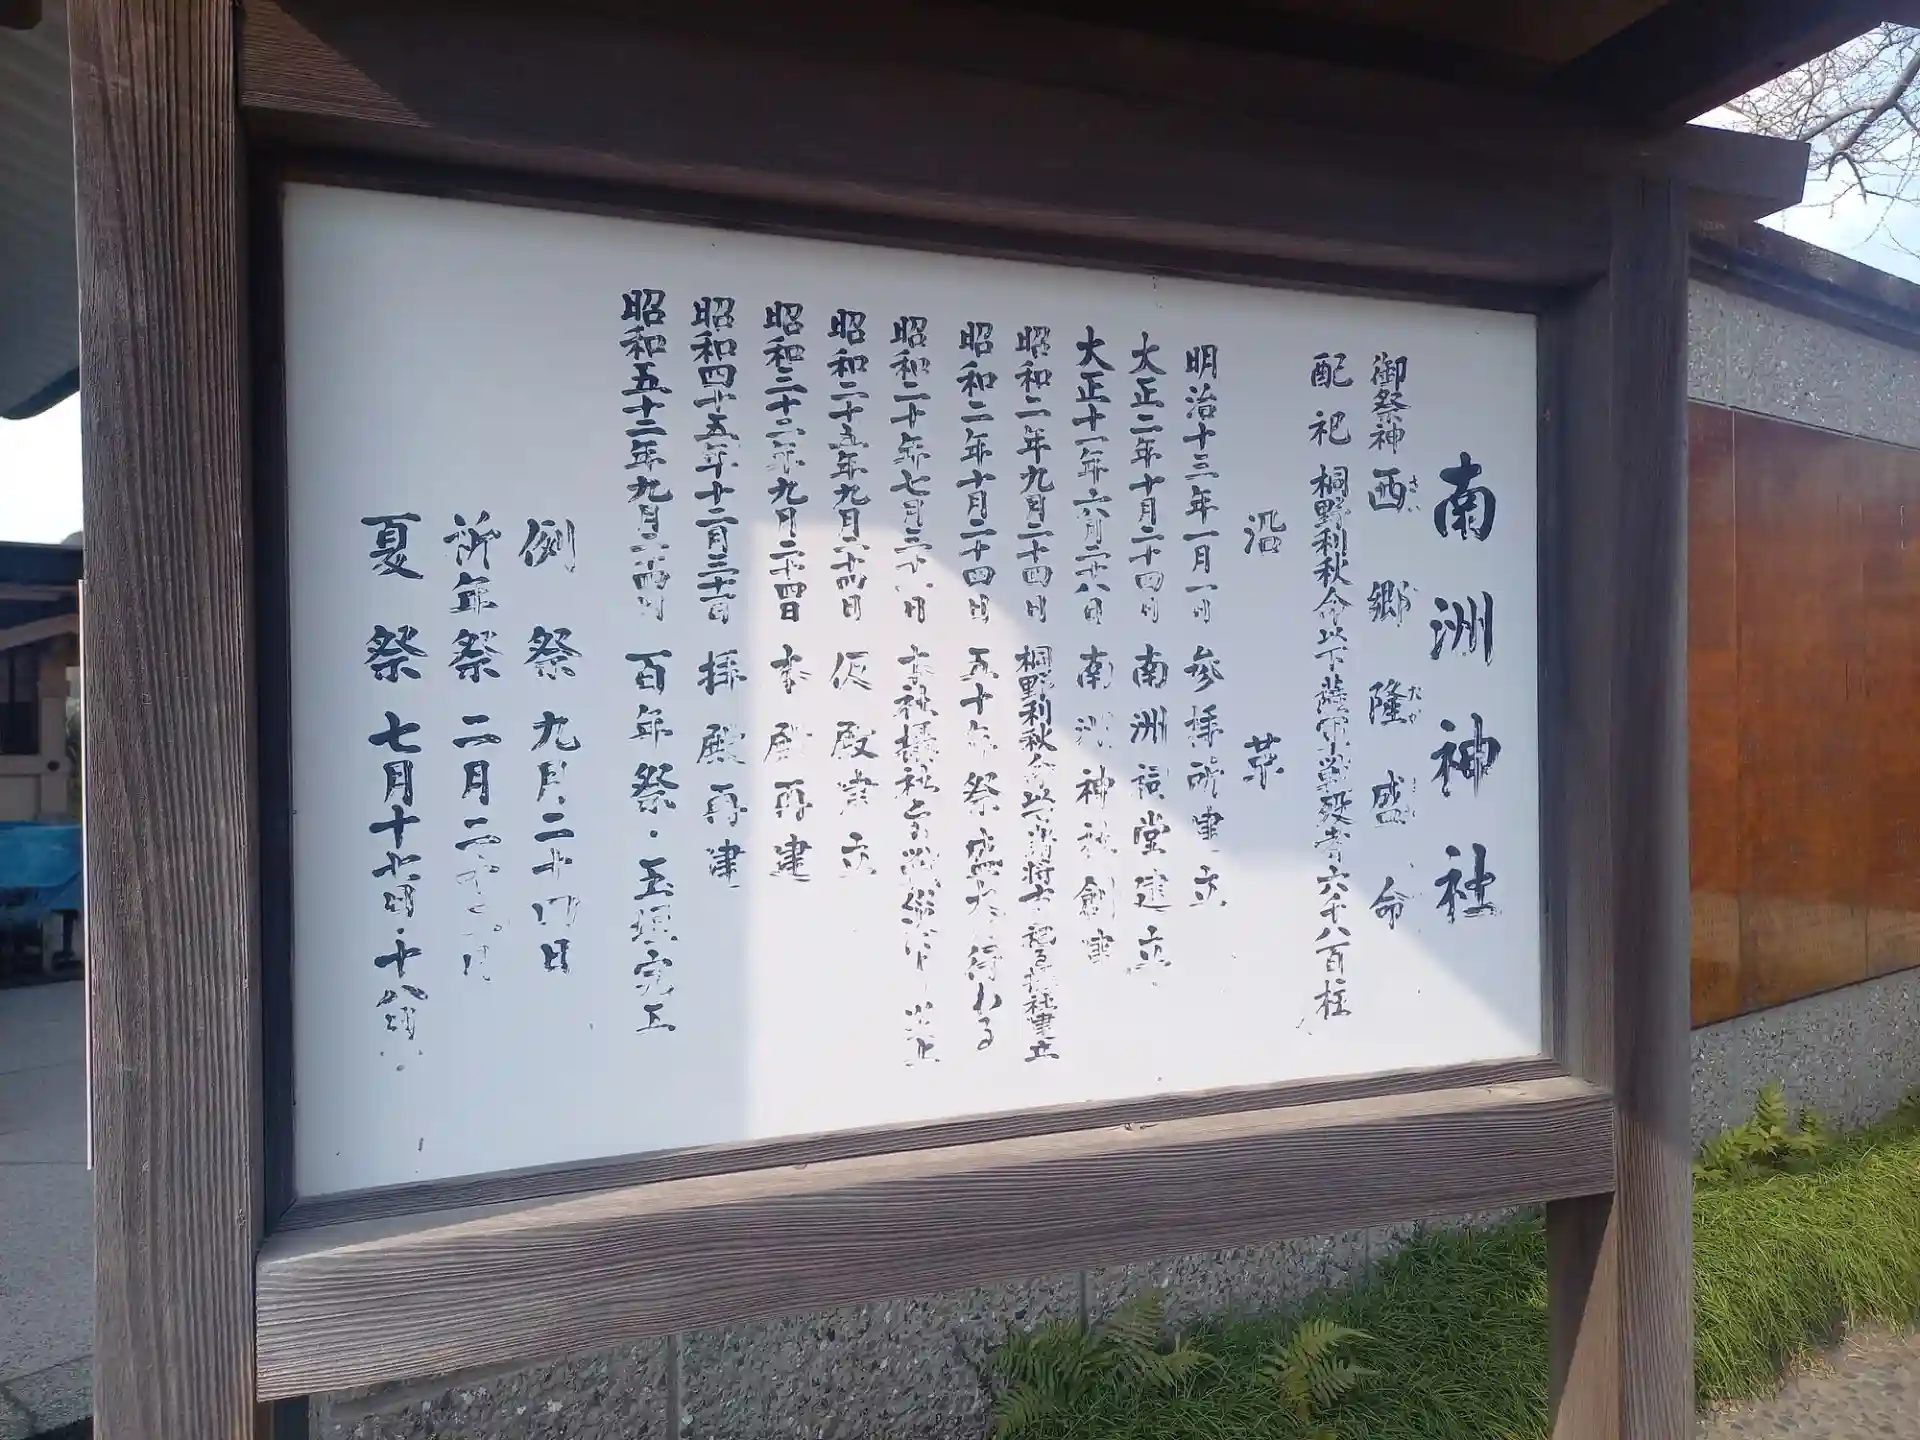 南洲神社
御祭神 西郷隆盛命
配祀 桐野利秋命以下薩軍戦没者六千八百柱
沿革
明治十三年一月一日 参拝所建立
大正二年十月二十四日 南洲祠堂建立
大正十一年六月二十八日 南洲神社創建
昭和二年九月二十四日 桐野利秋命以下 将士 祀る摂社建立
昭和二年十月二十四日 五十年祭盛大 行わる
昭和二十年七月三十一日 本社摂社 戦災
昭和二十五年九月二十四日 仮殿建立
昭和三十三年九月二十四日 本殿再建
昭和四十五年十二月三十一日 拝殿再建
昭和五十二年九月二十四日 百年祭・玉垣完工
例祭 九月二十四日
祈年祭 二月二十
夏祭 七月十七日・十八日